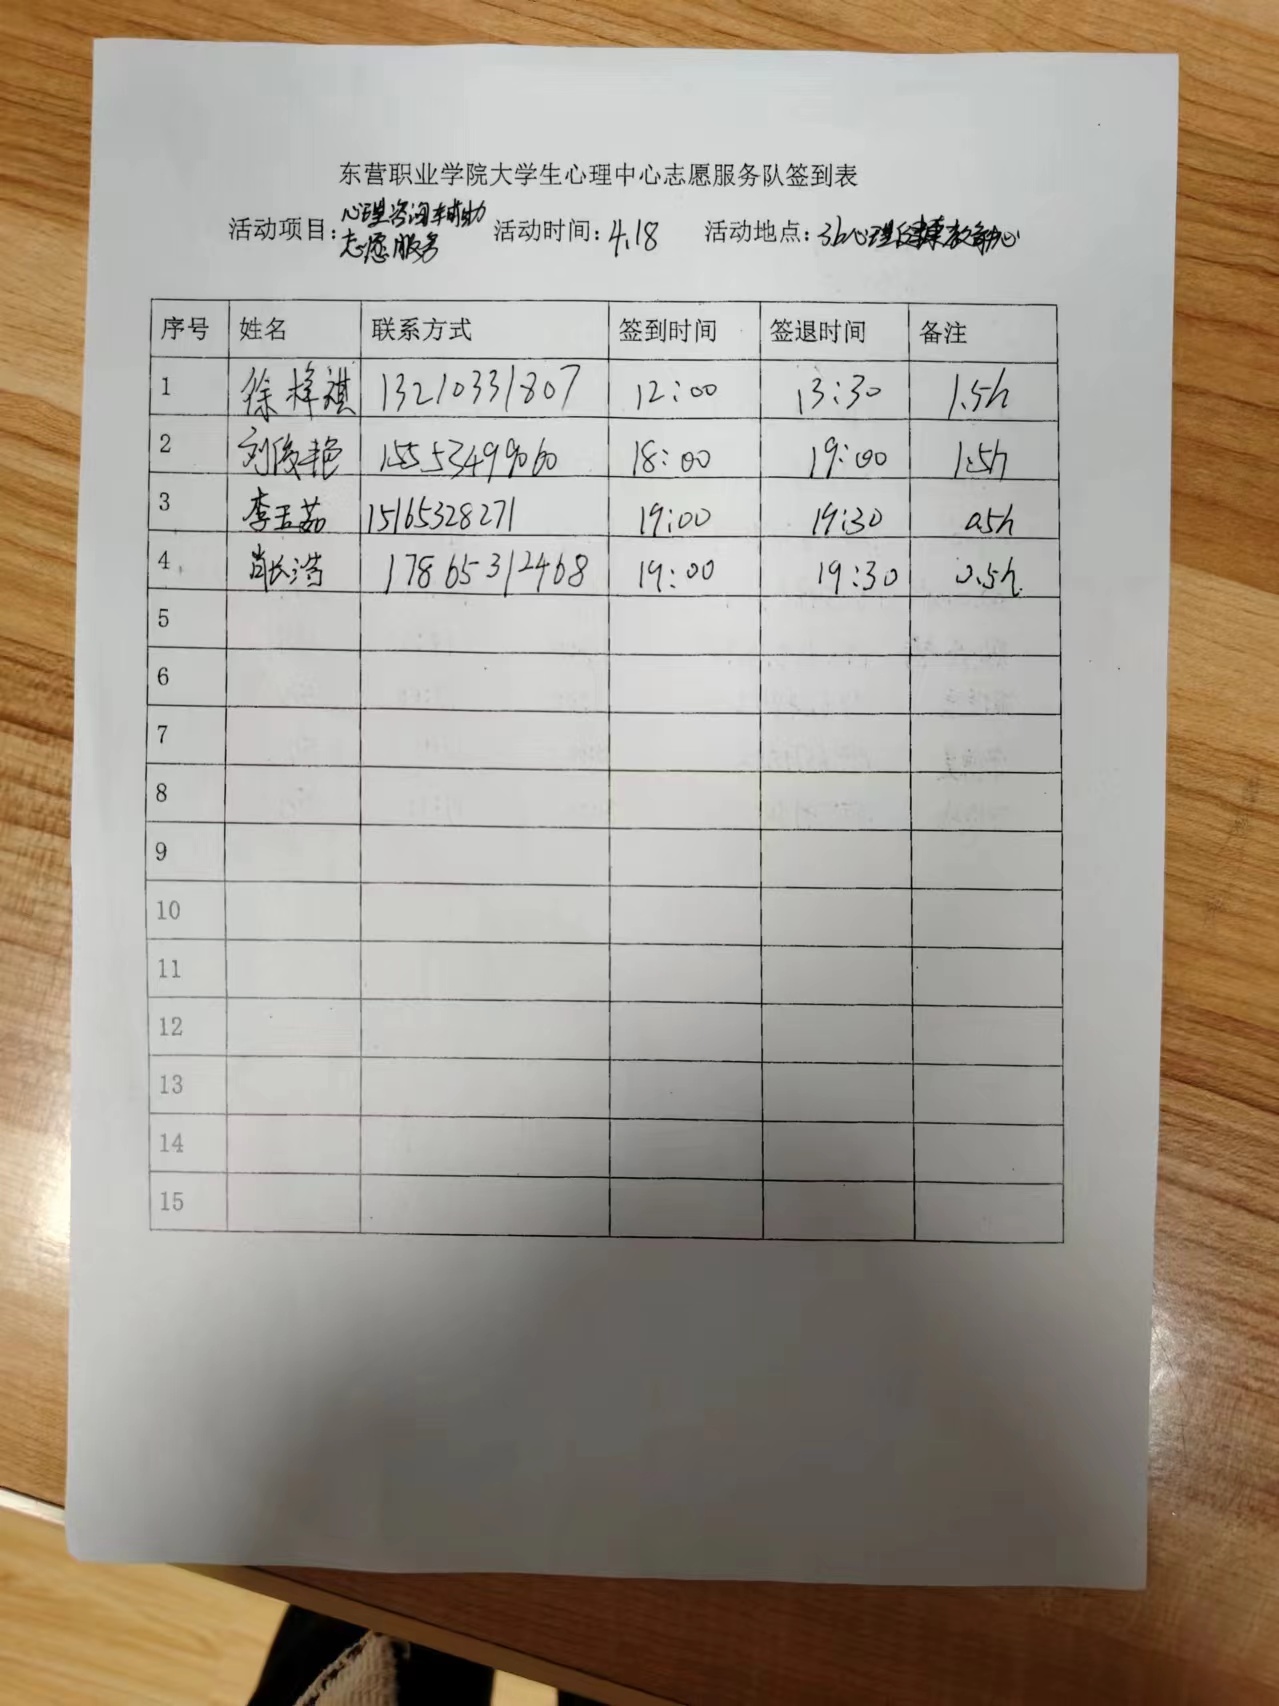 东营职业学院大学生心理中心志愿服务队签到表
活动项目：心理咨询辅助志愿服务 活动时间：4.18 活动地点：3b心理健康教育中心
序号 姓名 联系方式 签到时间 签退时间 备注
1 徐梓祺 13210331807 12:00 13:30 1.5h
2 刘俊艳 15553499060 18:00 19:00 1.5h
3 李玉茹 15165328271 19:00 19:30 0.5h
4 肖长浩 17865312468 19:00 19:30 0.5h
5
6
7
8
9
10
11
12
13
14
15